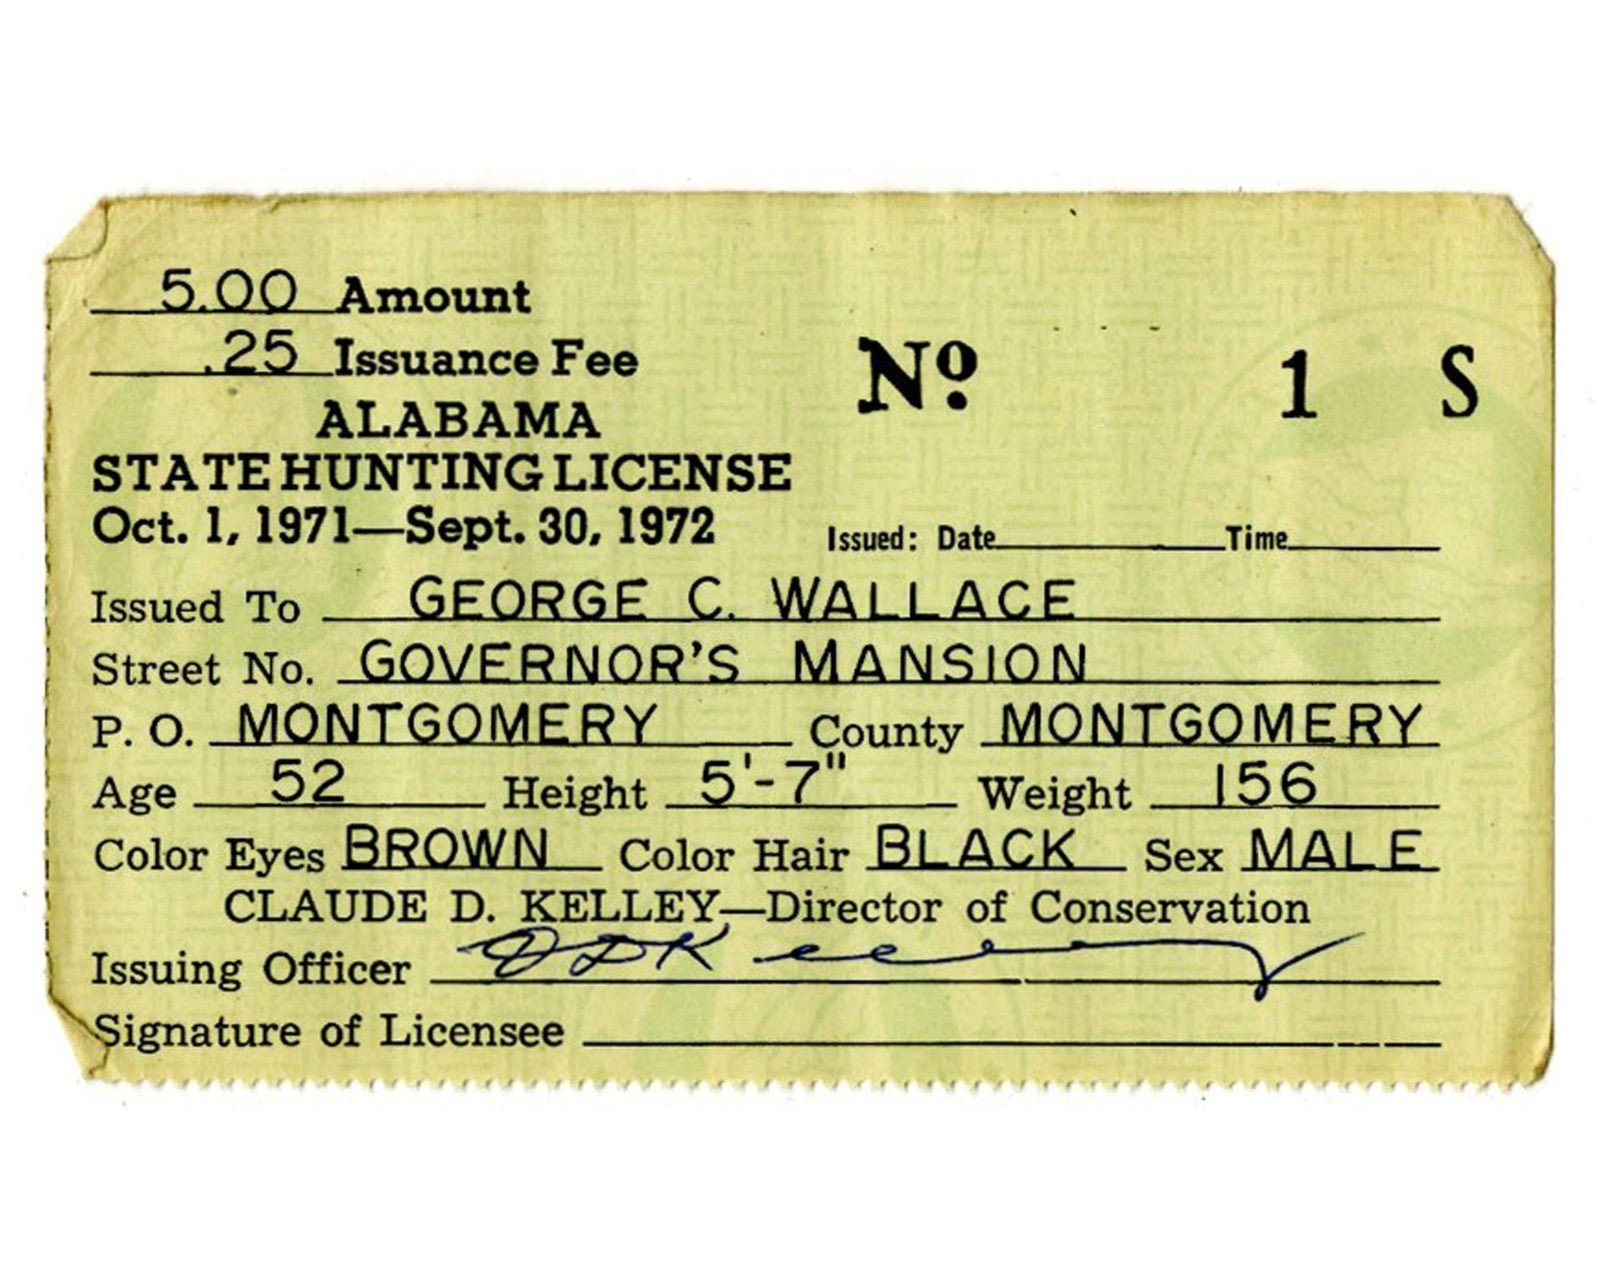 5.00 Amount
.25 Issuance Fee
Nº 1 S
ALABAMA
STATE HUNTING LICENSE
Oct. 1, 1971—Sept. 30, 1972
Issued: Date Time
Issued To GEORGE C. WALLACE
Street No. GOVERNOR'S MANSION
P. O. MONTGOMERY County MONTGOMERY
Age 52 Height 5'-7" Weight 156
Color Eyes BROWN Color Hair BLACK Sex MALE
CLAUDE D. KELLEY—Director of Conservation
Issuing Officer
Signature of Licensee